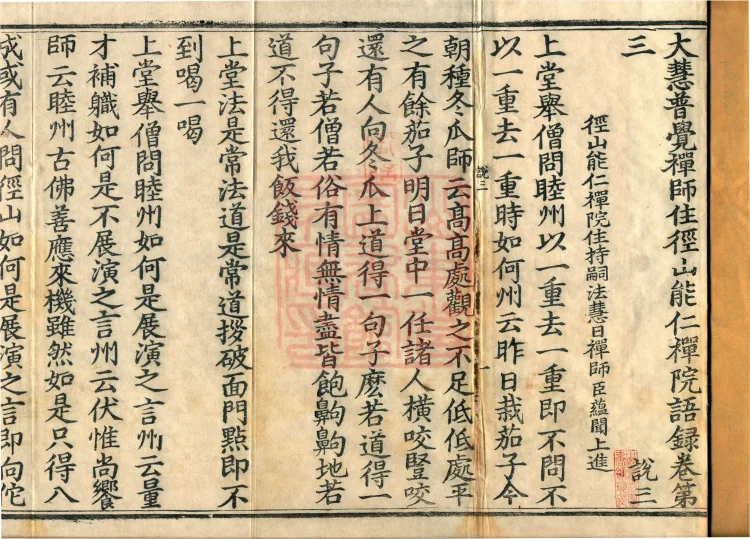 大慧普覺禪師住徑山能仁禪院語録卷第
三
說三
徑山能仁禪院住持嗣法慧日禪師臣蘊聞上進
上堂舉僧問睦州以一重去一重即不問不
以一重去一重時如何州云昨日栽茄子今
說三
朝種冬瓜師云髙髙處觀之不足低低處平
之有餘茄子明日堂中一任諸人橫咬豎咬
還有人向冬瓜上道得一句子麽若道得一
句子若僧若俗有情無情盡皆飽齁齁地若
道不得還我飯錢來
上堂法是常法道是常道拶破面門點即不
到喝一喝
上堂舉僧問睦州如何是展演之言州云量
才補軄如何是不展演之言州云伏惟尚饗
師云睦州古佛善應來機雖然如是只得八
成或有人問徑山如何是展演之言即向佗